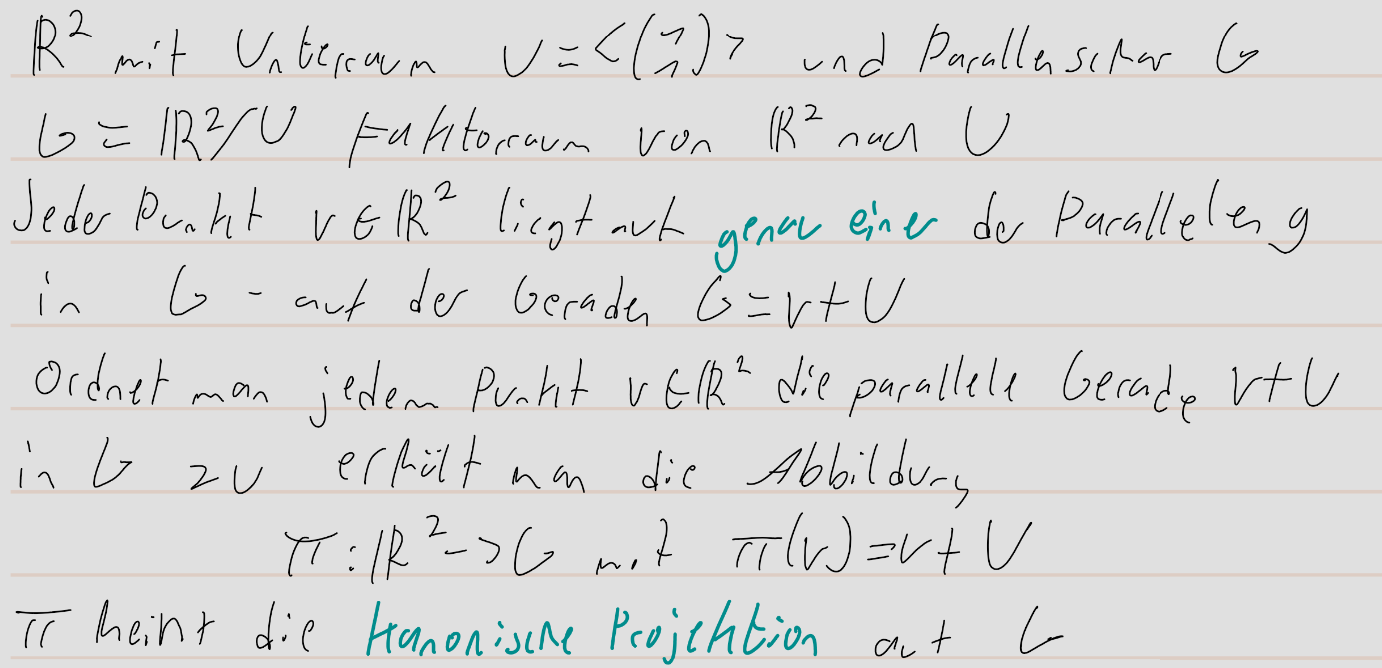 ℝ² mit Unterraum U = <(1 1)> und Parallenschar G
G = ℝ²/U Faktorraum von ℝ² nach U
Jeder Punkt v ∈ ℝ² liegt auf genau einer der Parallelen g
in G - auf der Geraden G = v + U
Ordnet man jedem Punkt v ∈ ℝ² die parallele Gerade v + U
in G zu erhält man die Abbildung
π : ℝ² -> G mit π(v) = v + U
π heint die kanonische Projektion auf G